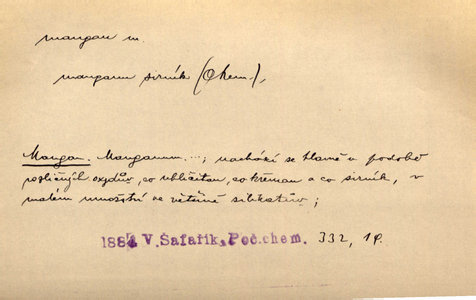 mangan m.
manganu sirník (Chem.),
Mangan. Manganum...; nachází se hlavně v podobě
rozličných oxydův, co uhličitan, co křeman a co sirník, v
malém množství ve většině silikatův;
1884 V. Šafařík, Poč. chem. 332, 19.